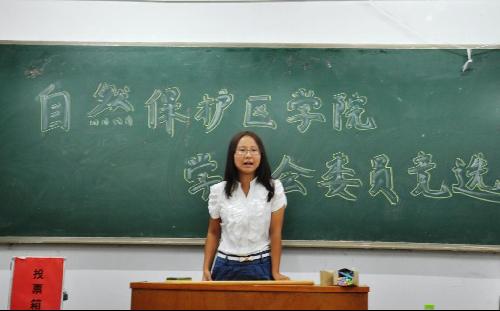 自然保护区学院
学 会委员竞选
投票箱